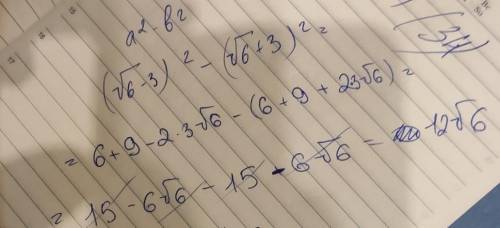 a² - b²
(√6 - 3)² - (√6 + 3)² =
= 6 + 9 - 2·3√6 - (6 + 9 + 23√6) =
= 15 - 6√6 - 15 - 6√6 = 12√6